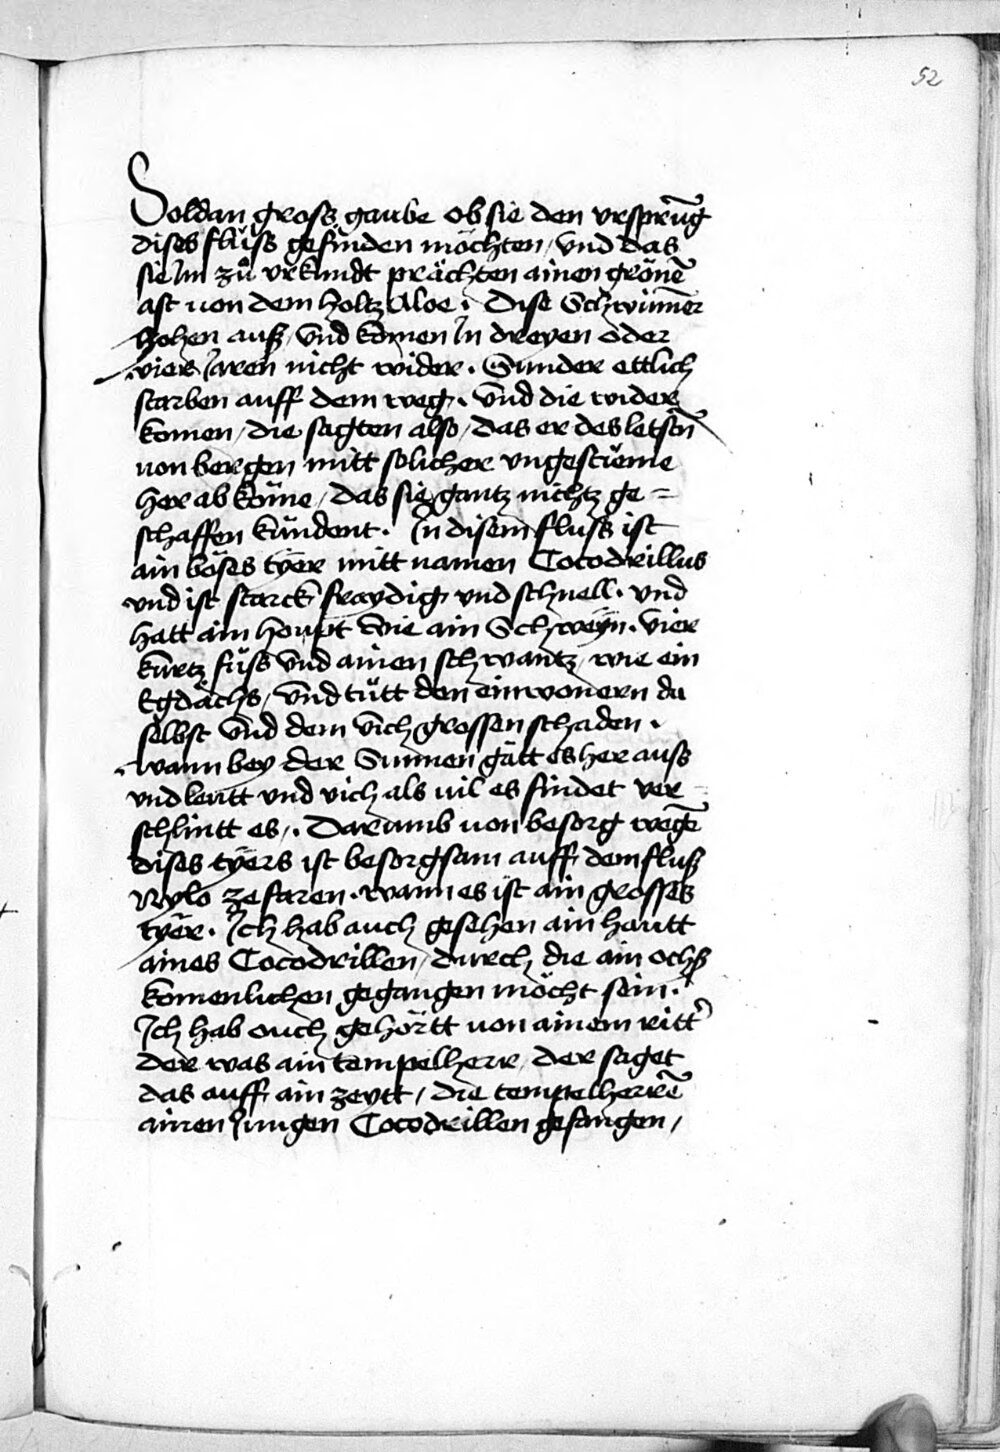 52
Soldan gross gaube ob sie den vrsprūg
dises fluss gefinden möchten / vnd das
sie Im zů vrkundt prächten ainen grönē
ast von dem holtz Aloe. Dise Schwim̄er
zohen auß / vnd komen In dreyen oder
vier Jaren nicht wider. Sunder ettlich
starben auff dem weg. vnd die wider
komen / die sagten also / das er des letsten
von bergen mitt solicher vngestüeme
her ab köme / das sie gantz nichtz ge=
schaffen kündent. In disem fluss ist
ain böses tyer mitt namen Cocodrillus
vnd ist starck fraydig vnd schnell. vnd
hatt ain houpt wie ain Schweyn. vier
kurtz füss vnd ainen schwantz / wie ein
Egdächs / vnd tütt den einwonern da
selbst vnd dem vich grossen schaden.
wann bey der Sunnen gätt es her auss
vnd leutt vnd vich als vil es findet ver=
schlintt es /. Darumb von besorg wegē
dises tyers ist besorgsam auff dem fluß
Nylo ze faren. wann es ist ain grosses
tyer. Ich hab auch gesehen ain hautt
aines Cocodrillen / durch die ain ochß
komenlichen gegangen möcht sein.
Ich hab ouch gehörtt von ainem ritt'
der was ain tempelherr / der saget
das auff ain zeytt / die tempelherrē
ainen Jungen Cocodrillen gefangen /